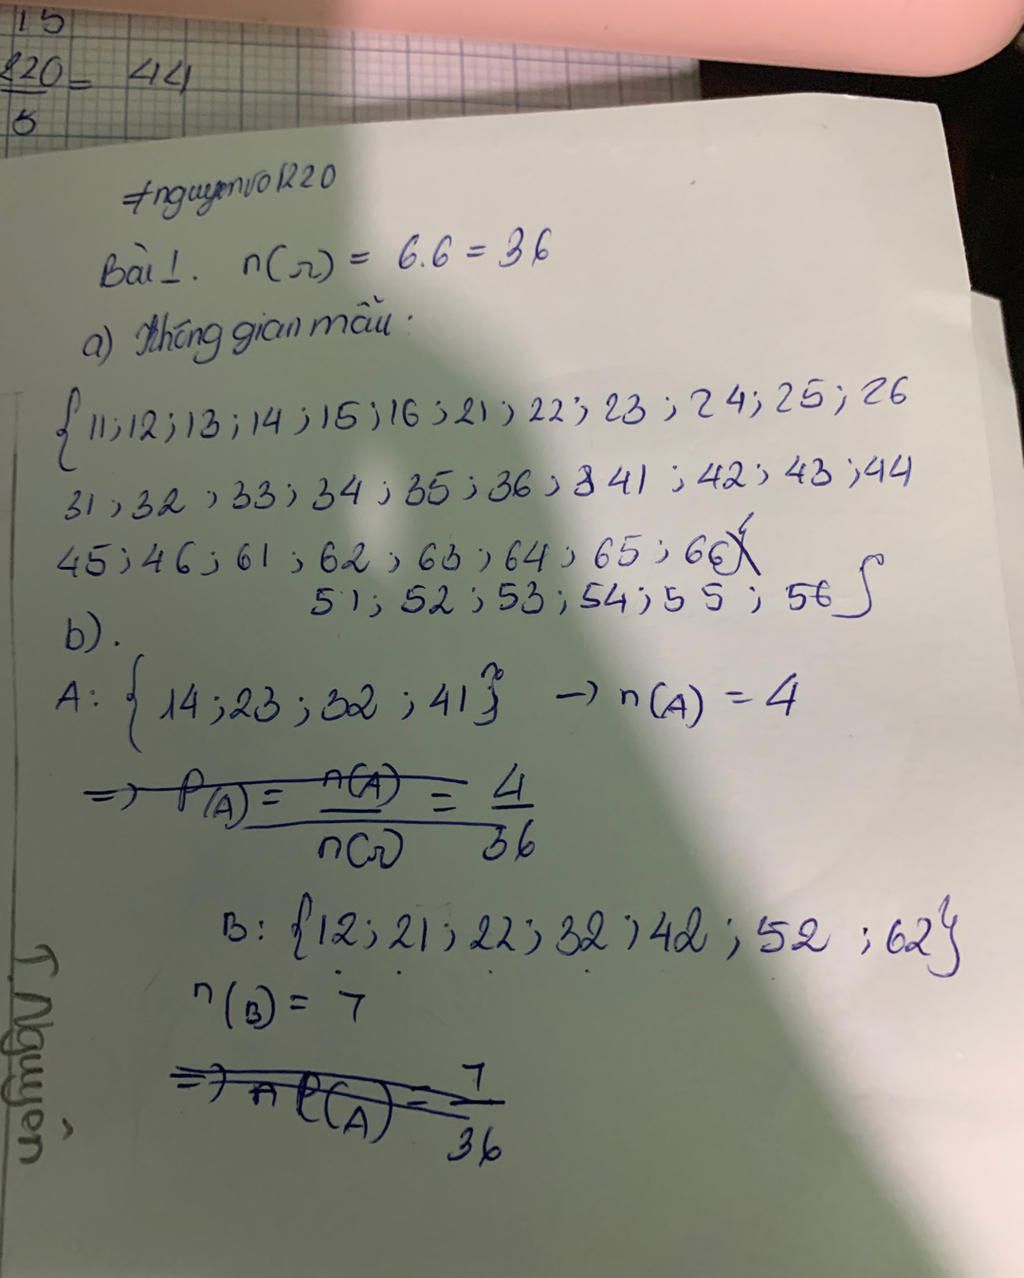 15
220 = 44
5
#nguyenvo1220
Bài 1. n(Ω) = 6.6 = 36
a) Không gian mẫu:
{11;12;13;14;15;16;21;22;23;24;25;26
31;32;33;34;35;36;3 41;42;43;44
45;46;61;62;63;64;65;66}
51;52;53;54;55;56}
b).
A: {14;23;32;41} → n(A) = 4
=> P(A) = n(A)/n(Ω) = 4/36
B: {12;21;22;32;42;52;62}
n(B) = 7
=> n P(A) = 7/36
T.Nguyên